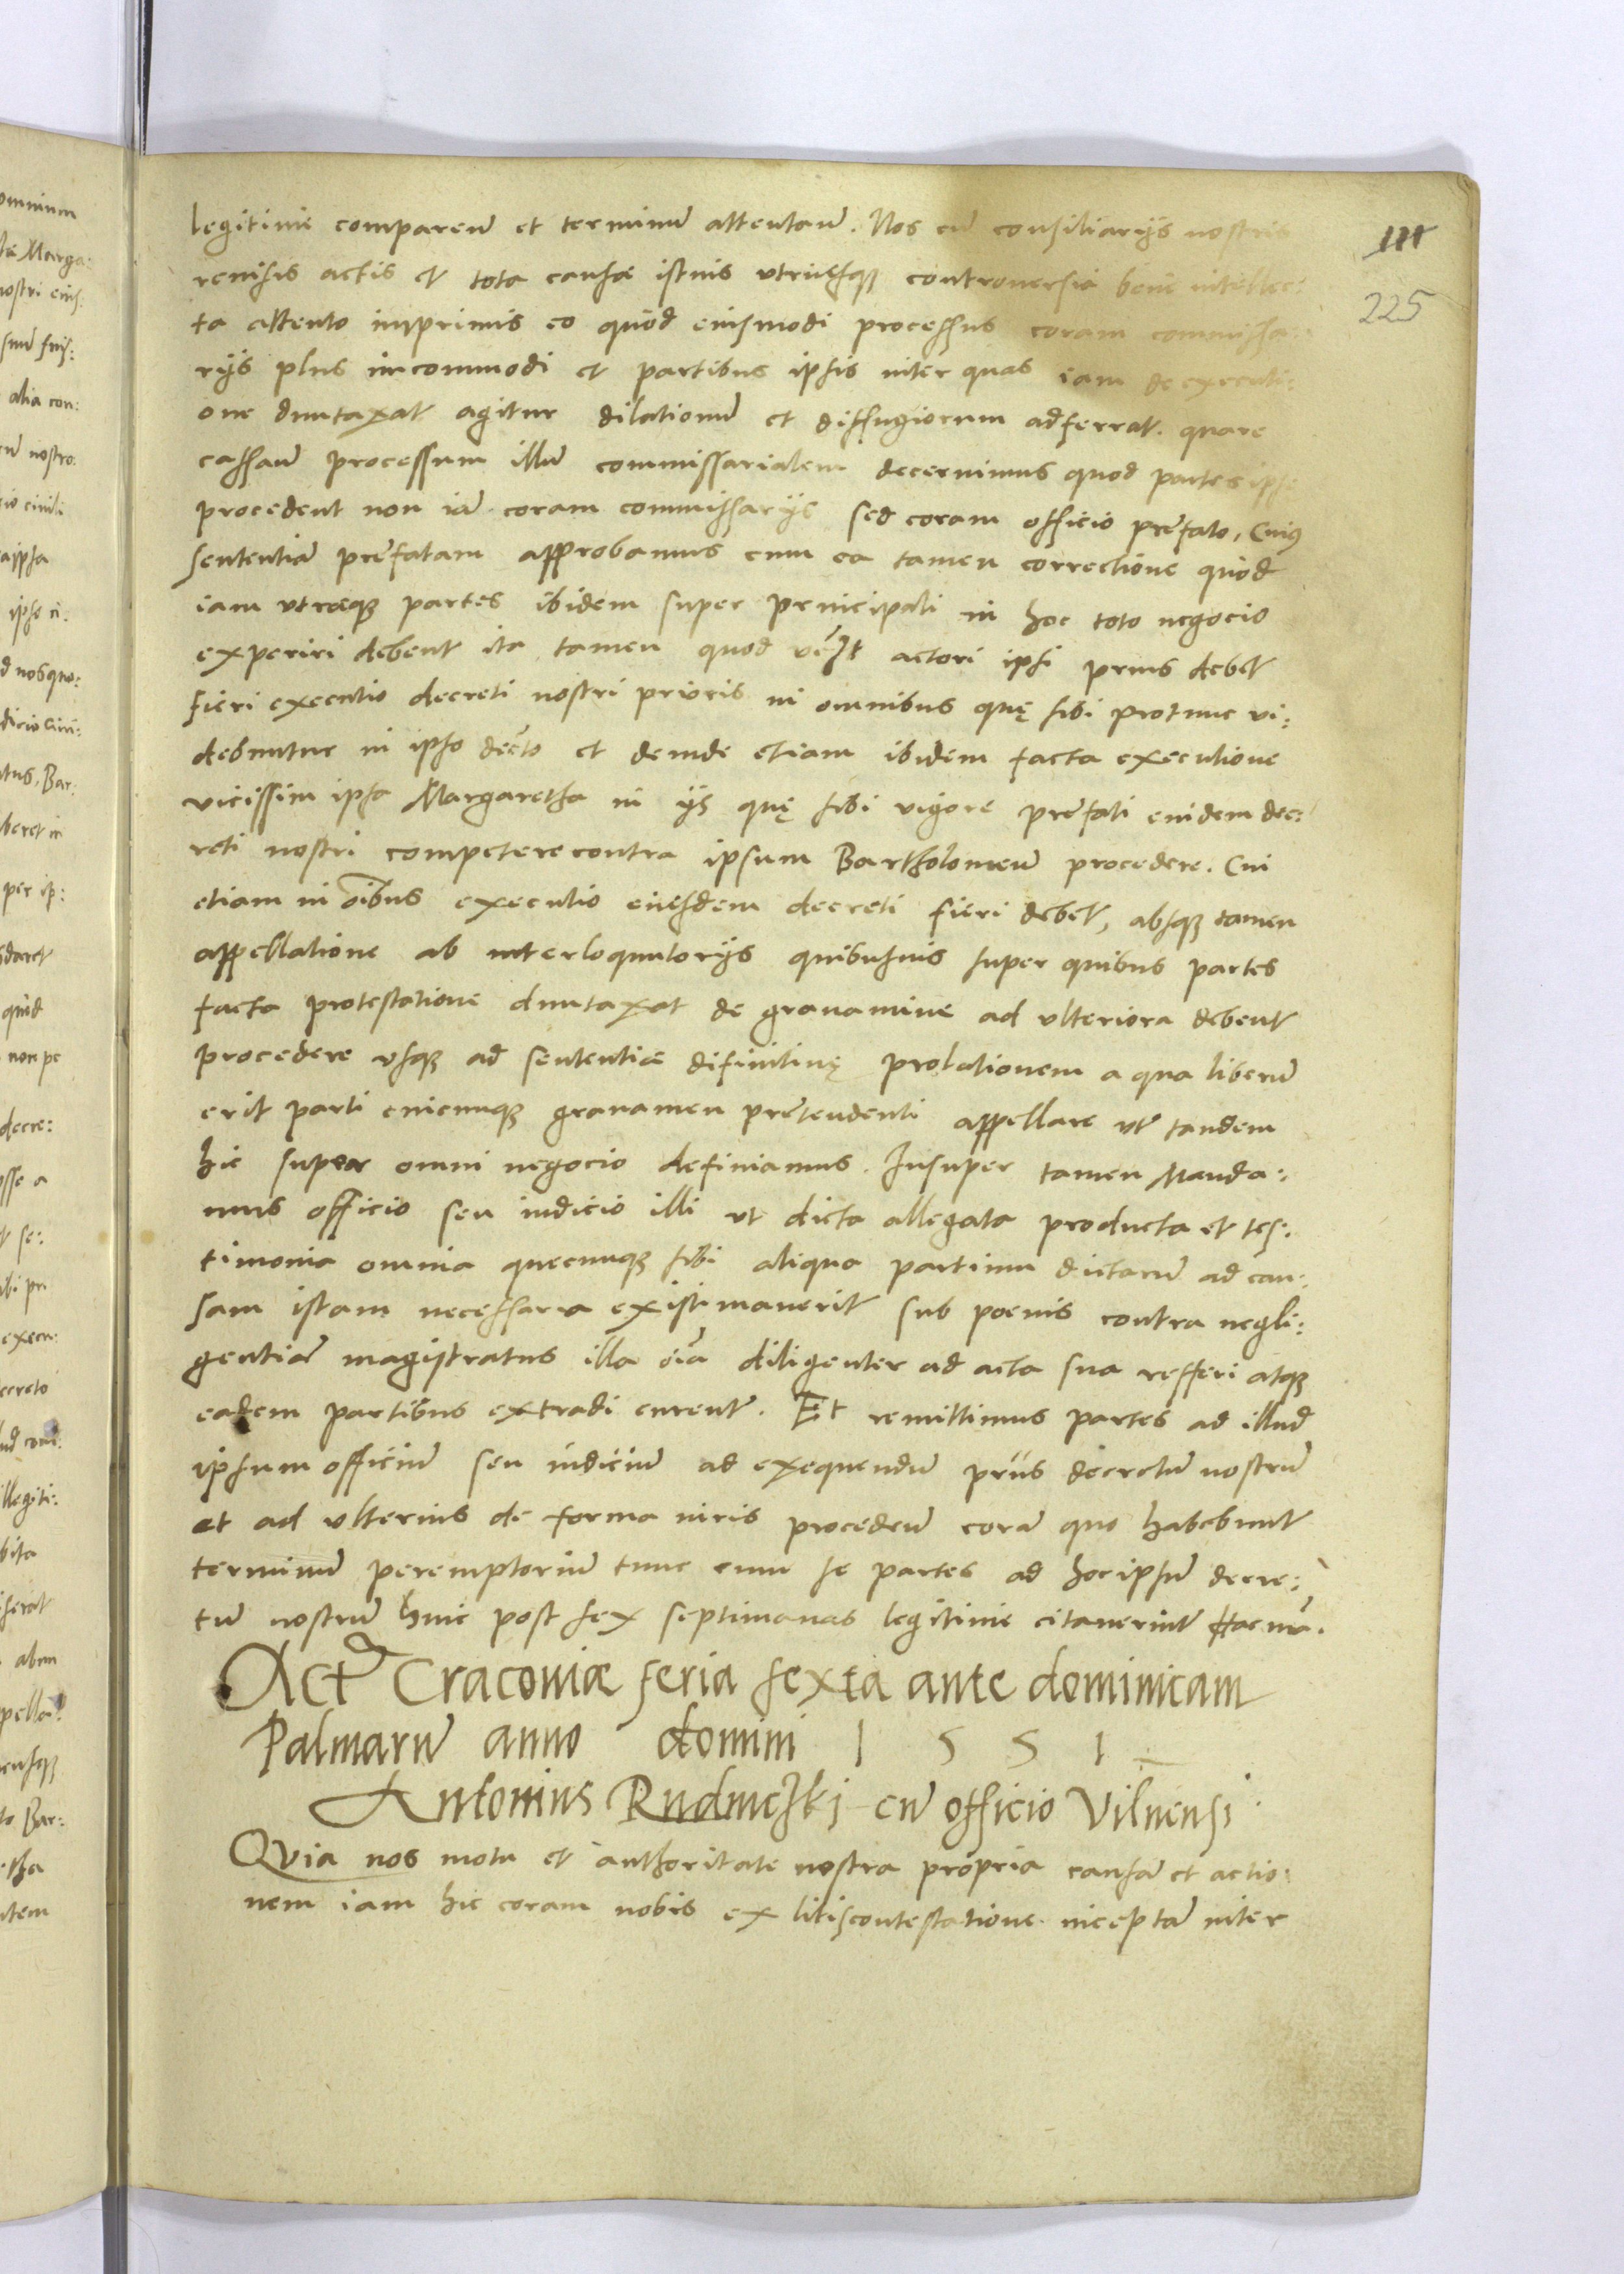 legitime comparen̄ et terminū attentan̄. Nos cū consiliarijs nostris
reuisis actis et tota causæ istius vtriusq₃ controuersia bene intellec:
ta attento inprimis eo quòd eiusmodi processus coram commissa:
rijs plus incommodi et partibus ipsis inter quas iam de executi:
one duntaxat agitur dilationū et diffugiorum adferrat. quare
cassan̄ processum illū commissarialem decernimus quod partes ipsæ
procedent non iā coram commissarijs sed coram officio prefato, Cuiꝰ
sententiā prefatam approbamus cum ea tamen correctione quòd
iam vtræq₃ partes ibidem super principali in hoc toto negocio
experiri debent ita tamen quod actori ipsi prius debet
fieri executio decreti nostri prioris in omnibus quę sibi protunc vi:
debuntur in ipso decto et deinde etiam ibidem facta executione
vicissim ipsa Margaretha in ijs quę sibi vigore prefati eiusdem dec:
reti nostri competere contra ipsum Bartholomeū procedere. Cui
etiam in oībus executio eiusdem decreti fieri debet, absq₃ tamen
appellatione ab interloquutorijs quibusuis super quibus partes
facta protestatione duntaxat de grauamine ad vlteriora debent
procedere vsq₃ ad sententiæ difinitiuę prolationem a qua liberū
erit parti cuicunq₃ grauamen pretendenti appellare vt tandem
hic super omni negocio definiamus. Insuper tamen Manda:
mus officio seu iudicio illi ut dicta allegata producta et tes:
timonia omnia quecunq₃ sibi aliqua partium dictarū ad cau:
sam istam necessaria existimauerit sub poenis contra negli:
gentiā magistratus illa oīa diligenter ad acta sua refferi atq₃
eadem partibus extradi curent. Et remittimus partes ad illud
ipsum officiū seu iudiciū ad exequendū prius decretū nostrū
et ad vlterius de forma iuris proceden̄ corā quo habebunt
terminū peremptoriū tunc cum se partes ad hoc ipsū decre:
tū nostrū hinc post sex septimanas legitime citauerint Harum.
Actū Cracouiæ feria sexta ante dominicam
Palmarū anno domini 1 5 5 1
Antonius Rudniczki cū officio Vilnensi
Quia nos motu et authoritate nostra propria causā et actio:
nem iam hic coram nobis ex litiscontestatione inceptā inter
225